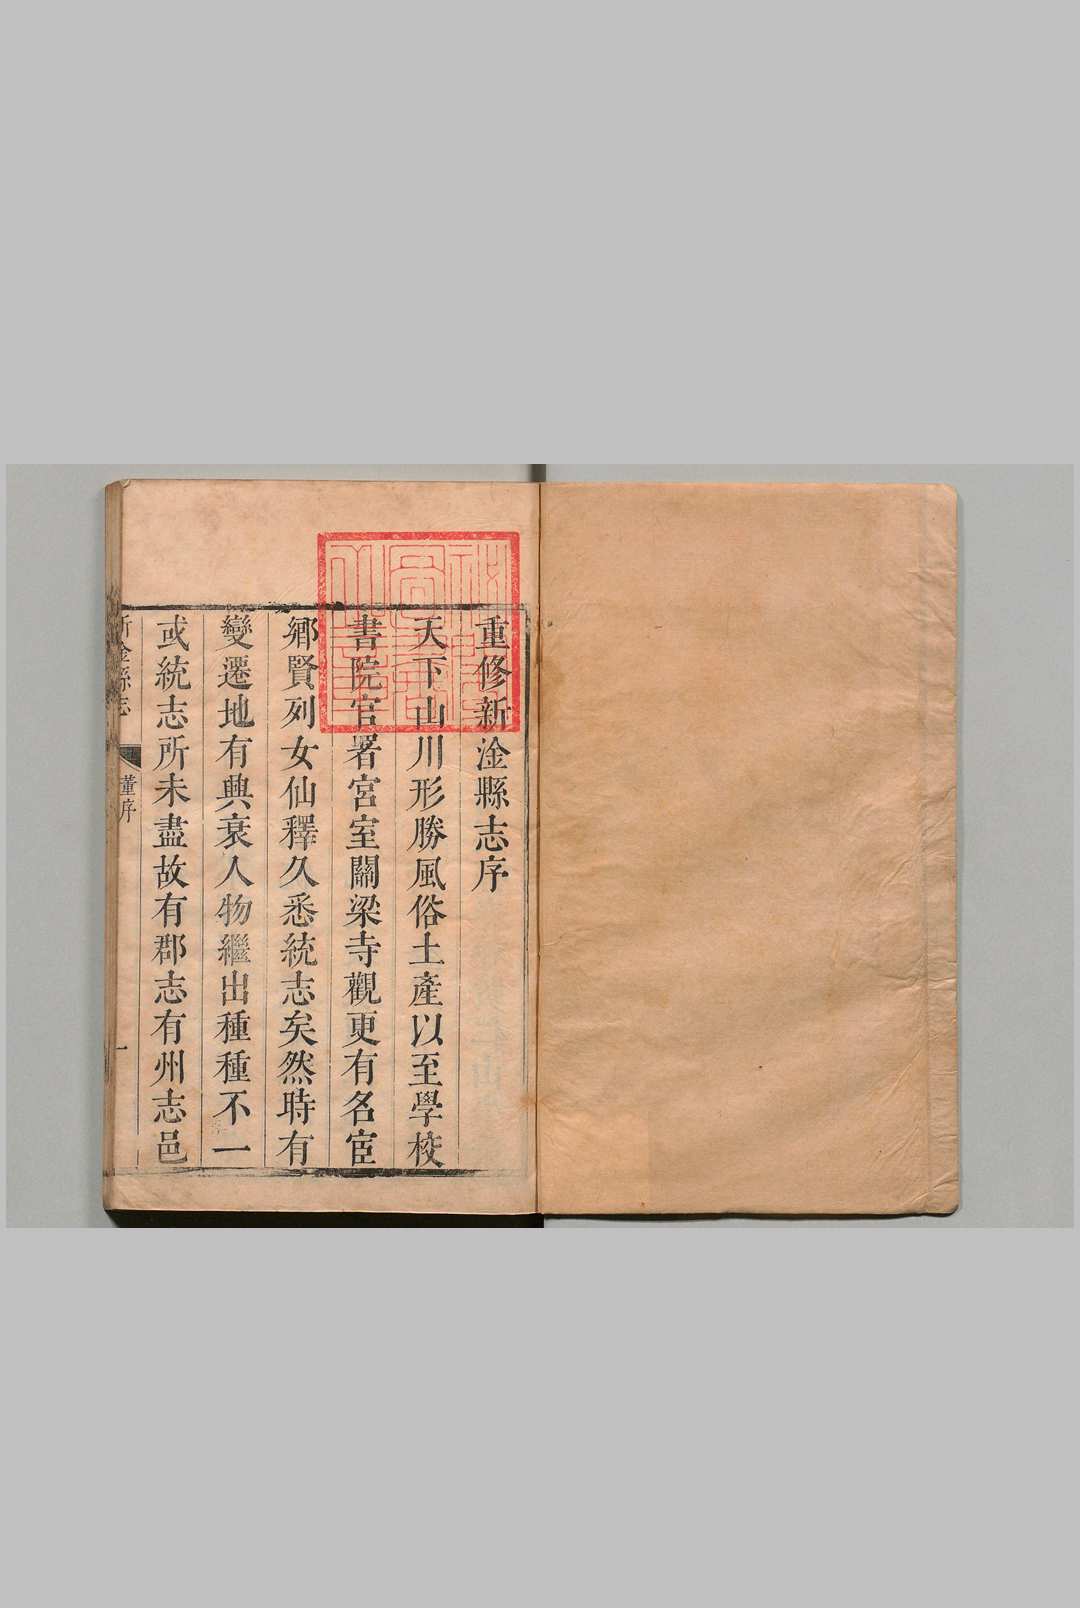 重修新淦縣志序
天下山川形勝風俗土產以至學校
書院官署宮室關梁寺觀更有名宦
鄉賢列女仙釋久悉統志矣然時有
變遷地有興衰人物繼出種種不一
或統志所未盡故有郡志有州志邑
新淦縣志 董序 一